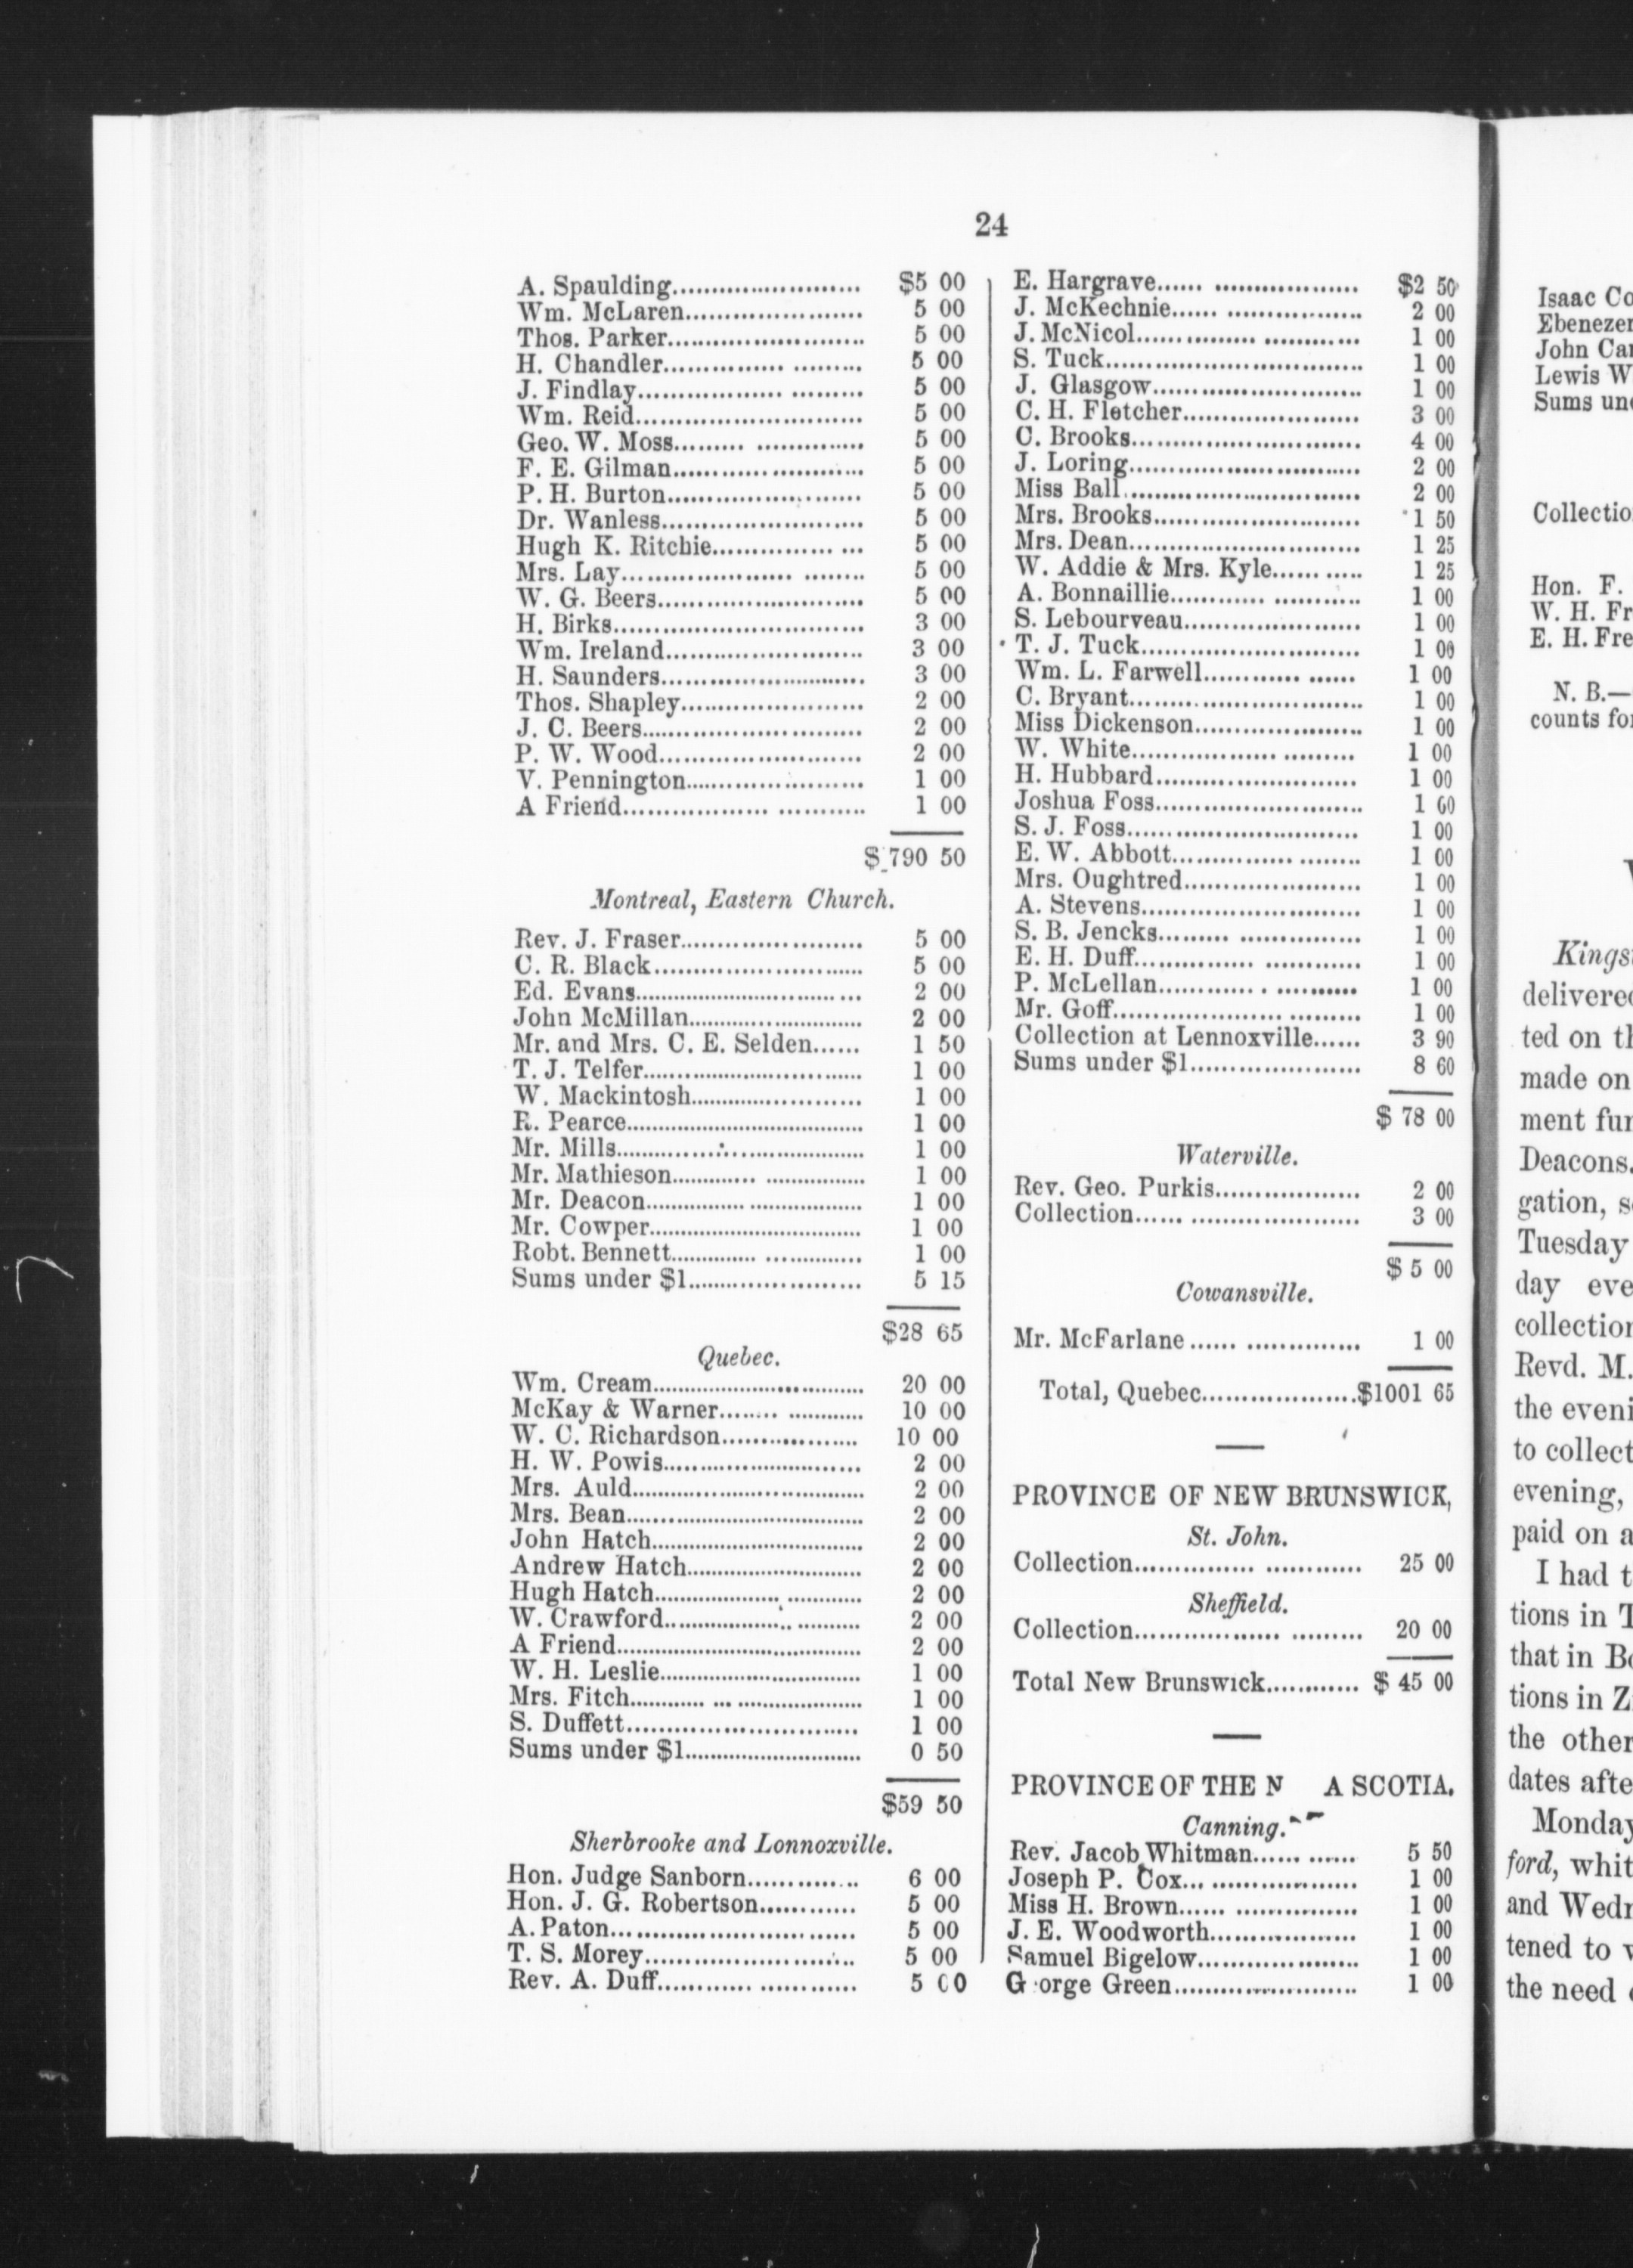 24
A. Spaulding........................ $5 00
Wm. McLaren...................... 5 00
Thos. Parker......................... 5 00
H. Chandler............... ......... 5 00
J. Findlay.................. ......... 5 00
Wm. Reid............................. 5 00
Geo. W. Moss......... .............. 5 00
F. E. Gilman........................ 5 00
P. H. Burton........................ 5 00
Dr. Wanless......................... 5 00
Hugh K. Ritchie............... ... 5 00
Mrs. Lay..................... ........ 5 00
W. G. Beers.......................... 5 00
H. Birks................................ 3 00
Wm. Ireland......................... 3 00
H. Saunders.......................... 3 00
Thos. Shapley....................... 2 00
J. C. Beers............................ 2 00
P. W. Wood.......................... 2 00
V. Pennington...................... 1 00
A Friend.................. ........... 1 00
$ 790 50
Montreal, Eastern Church.
Rev. J. Fraser....................... 5 00
C. R. Black.......................... 5 00
Ed. Evans............................... ... 2 00
John McMillan...................... 2 00
Mr. and Mrs. C. E. Selden...... 1 50
T. J. Telfer............................ 1 00
W. Mackintosh...................... 1 00
R. Pearce.............................. 1 00
Mr. Mills............................... 1 00
Mr. Mathieson............. ............... 1 00
Mr. Deacon............... ................. 1 00
Mr. Cowper............................ 1 00
Robt. Bennett............. ............. 1 00
Sums under $1...................... 5 15
$28 65
Quebec.
Wm. Cream........................... 20 00
McKay & Warner........ ............ 10 00
W. C. Richardson................. 10 00
H. W. Powis......................... 2 00
Mrs. Auld............................. 2 00
Mrs. Bean............................. 2 00
John Hatch........................... 2 00
Andrew Hatch...................... 2 00
Hugh Hatch.................... ............ 2 00
W. Crawford................ .......... 2 00
A Friend............................... 2 00
W. H. Leslie......................... 1 00
Mrs. Fitch............ ... .................. 1 00
S. Duffett............................. 1 00
Sums under $1...................... 0 50
$59 50
Sherbrooke and Lonnoxville.
Hon. Judge Sanborn.............. 6 00
Hon. J. G. Robertson............ 5 00
A. Paton............................... 5 00
T. S. Morey.......................... 5 00
Rev. A. Duff............ ............ 5 00
E. Hargrave...... .................. $2 50
J. McKechnie...... ................. 2 00
J. McNicol............... ............ 1 00
S. Tuck................................ 1 00
J. Glasgow.......................... 1 00
C. H. Fletcher...................... 3 00
C. Brooks............................. 4 00
J. Loring............................. 2 00
Miss Ball.............................. 2 00
Mrs. Brooks.......................... 1 50
Mrs. Dean............................. 1 25
W. Addie & Mrs. Kyle...... ..... 1 25
A. Bonnaillie............ ........... 1 00
S. Lebourveau...................... 1 00
T. J. Tuck............................ 1 00
Wm. L. Farwell............ ...... 1 00
C. Bryant............................. 1 00
Miss Dickenson..................... 1 00
W. White.................. ......... 1 00
H. Hubbard......................... 1 00
Joshua Foss.......................... 1 00
S. J. Foss............................. 1 00
E. W. Abbott............... ........ 1 00
Mrs. Oughtred...................... 1 00
A. Stevens............................ 1 00
S. B. Jencks......... ............... 1 00
E. H. Duff............... ............ 1 00
P. McLellan............ . .......... 1 00
Mr. Goff..................... ......... 1 00
Collection at Lennoxville...... 3 90
Sums under $1...................... 8 60
$ 78 00
Waterville.
Rev. Geo. Purkis.................. 2 00
Collection...... ..................... 3 00
$ 5 00
Cowansville.
Mr. McFarlane...... .............. 1 00
Total, Quebec....................$1001 65
PROVINCE OF NEW BRUNSWICK,
St. John.
Collection............... ............ 25 00
Sheffield.
Collection.................. ......... 20 00
Total New Brunswick............ $ 45 00
PROVINCE OF THE N A SCOTIA.
Canning.
Rev. Jacob Whitman...... ...... 5 50
Joseph P. Cox... .................. 1 00
Miss H. Brown...... ............... 1 00
J. E. Woodworth.................. 1 00
Samuel Bigelow.................... 1 00
G orge Green....................... 1 00
Isaac Co
Ebenezer
John Car
Lewis W
Sums und
Collectio
Hon. F.
W. H. Fr
E. H. Fre
N. B.—
counts for
Kings
delivered
ted on th
made on
ment fun
Deacons.
gation, s
Tuesday
day eve
collection
Revd. M.
the eveni
to collect
evening,
paid on a
I had t
tions in T
that in Bo
tions in Z
the other
dates afte
Monday
ford, whit
and Wedn
tened to w
the need